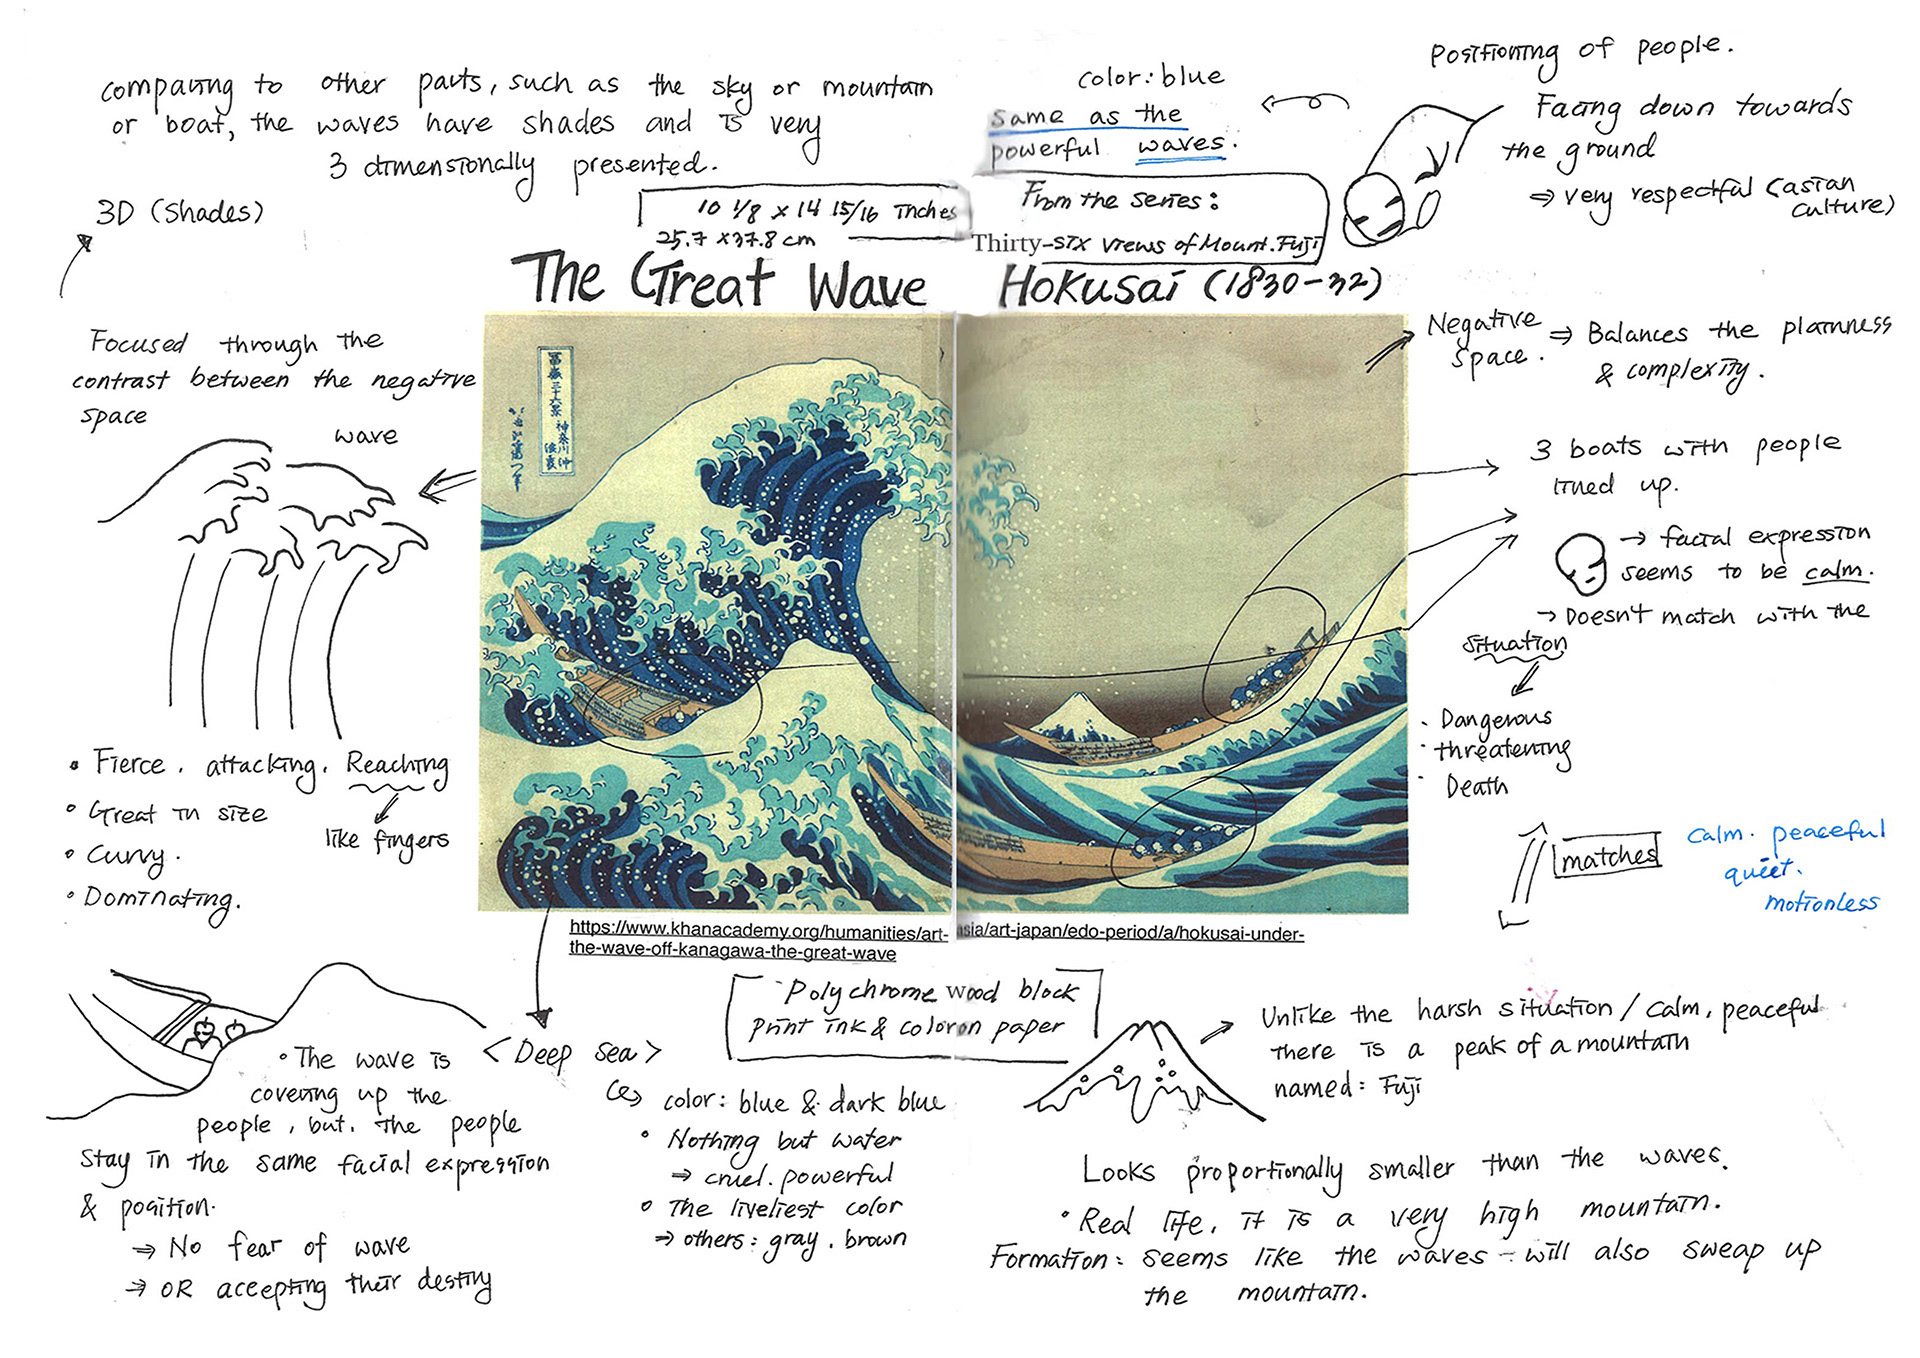 comparing to other parts, such as the sky or mountain
or boat, the waves have shades and is very
3 dimensionally presented.
3D (Shades)
color: blue
same as the
powerful waves.
Positioning of people.
Facing down towards
the ground
⇒ very respectful (asian
culture)
10 1/8 x 14 15/16 inches
25.7 x 37.8 cm
From the series:
Thirty-six views of Mount.Fuji
The Great Wave Hokusai (1830-32)
Focused through the
contrast between the negative
space
wave
• Fierce. attacking. Reaching
like fingers
• Great in size
• Curvy.
• Dominating.
冨嶽三十六景
神奈川沖
浪裏
Negative
space.
⇒ Balances the plainness
& complexity.
3 boats with people
lined up.
→ facial expression
seems to be calm.
→ Doesn't match with the
situation
· Dangerous
· threatening
· Death
matches
calm. peaceful
quiet.
motionless
https://www.khanacademy.org/humanities/art-asia/art-japan/edo-period/a/hokusai-under-
the-wave-off-kanagawa-the-great-wave
• The wave is
covering up the
people, but. the people
stay in the same facial expression
& position.
⇒ No fear of wave
⇒ OR accepting their destiny
<Deep sea>
color: blue & dark blue
• Nothing but water
⇒ cruel. powerful
• The liveliest color
⇒ others: gray. brown
Polychrome wood block
print ink & color on paper
Unlike the harsh situation/calm, peaceful
there is a peak of a mountain
named: Fuji
Looks proportionally smaller than the waves.
• Real life, it is a very high mountain.
Formation: seems like the waves - will also sweap up
the mountain.